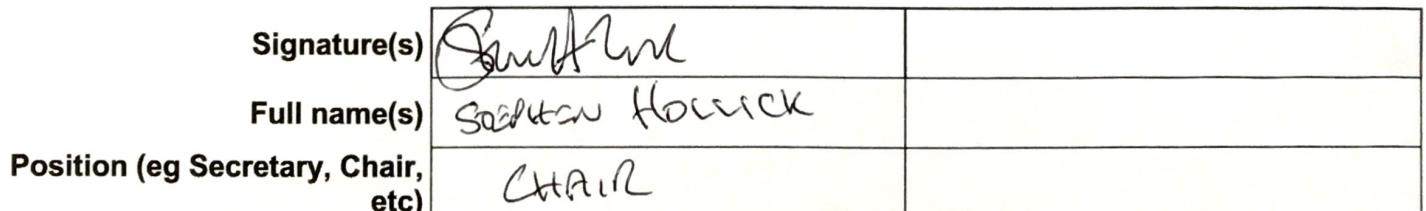 Signature(s)
Full name(s) STEPHEN HOLLICK
Position (eg Secretary, Chair, CHAIR
etc)